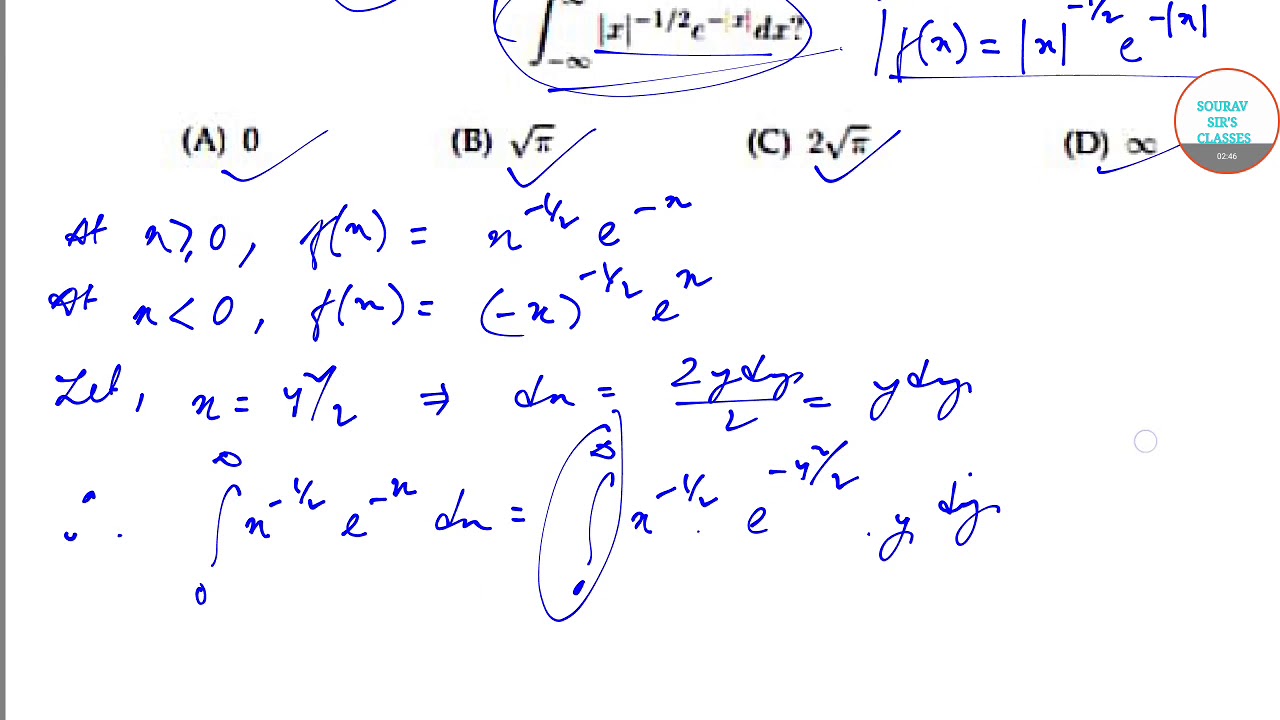 ∫_{-∞}^{∞} |x|^{-1/2} e^{-|x|} dx?
f(x) = |x|^{-1/2} e^{-|x|}
SOURAV
SIR'S
CLASSES
02:46
(A) 0 (B) √π (C) 2√π (D) ∞
At x ≥ 0, f(x) = x^{-1/2} e^{-x}
At x < 0, f(x) = (-x)^{-1/2} e^{x}
Let, x = y²/2 ⇒ dx = 2y dy/2 = y dy
∴ ∫_0^∞ x^{-1/2} e^{-x} dx = ∫_0^∞ x^{-1/2} . e^{-y²/2} . y dy